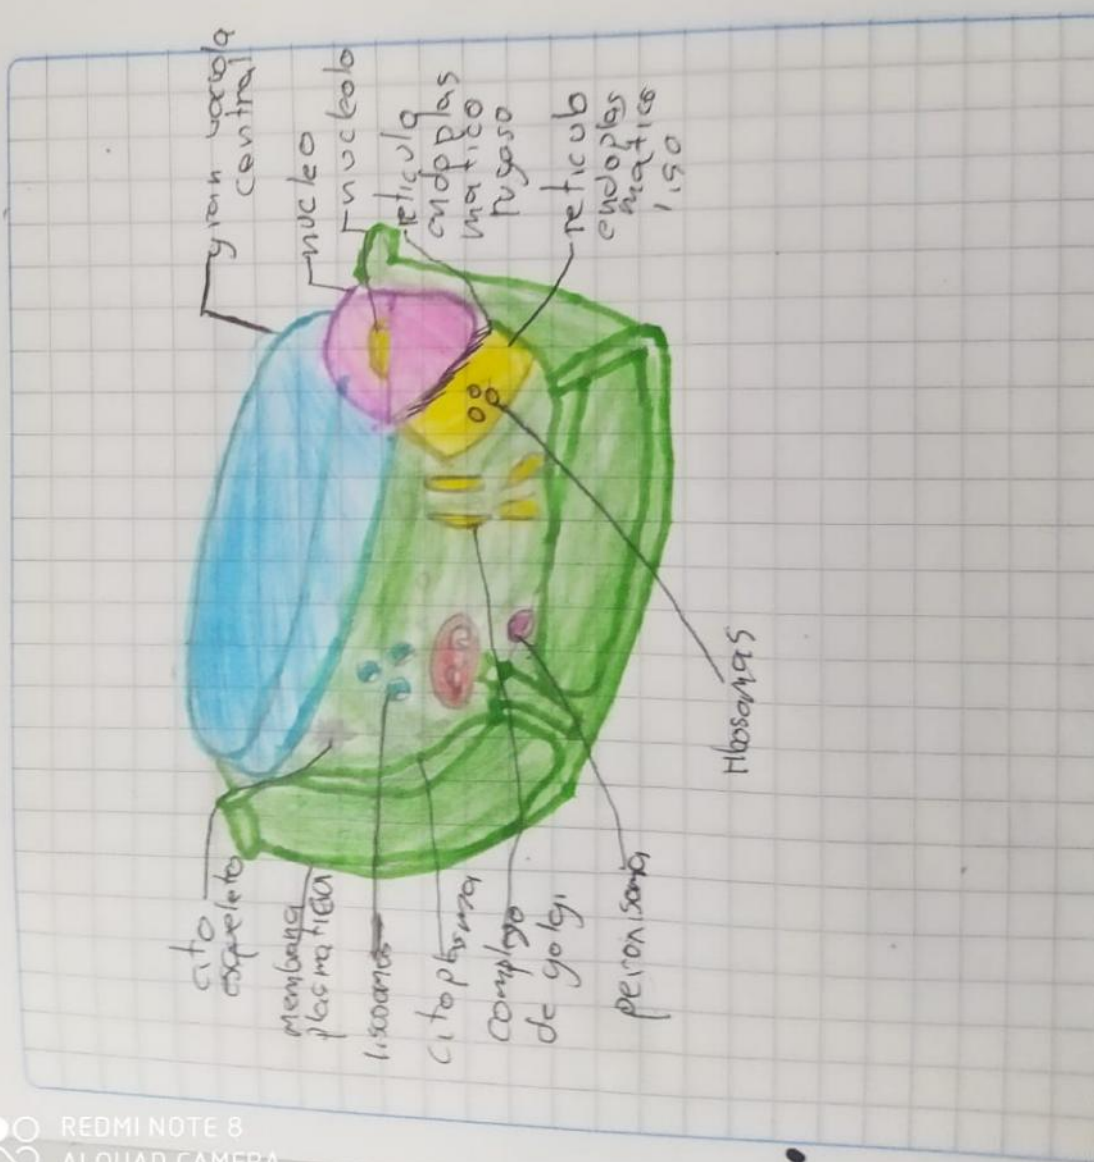 gran vacuola
central
nucleo
nucleolo
reticulo
endoplas
matico
rugoso
reticulo
endoplas
matico
liso
cito
esqueleto
membrana
plasmatica
lisosomas
citoplasma
complejo
de golgi
peroxisoma
Ribosomas
REDMI NOTE 8
AI QUAD CAMERA